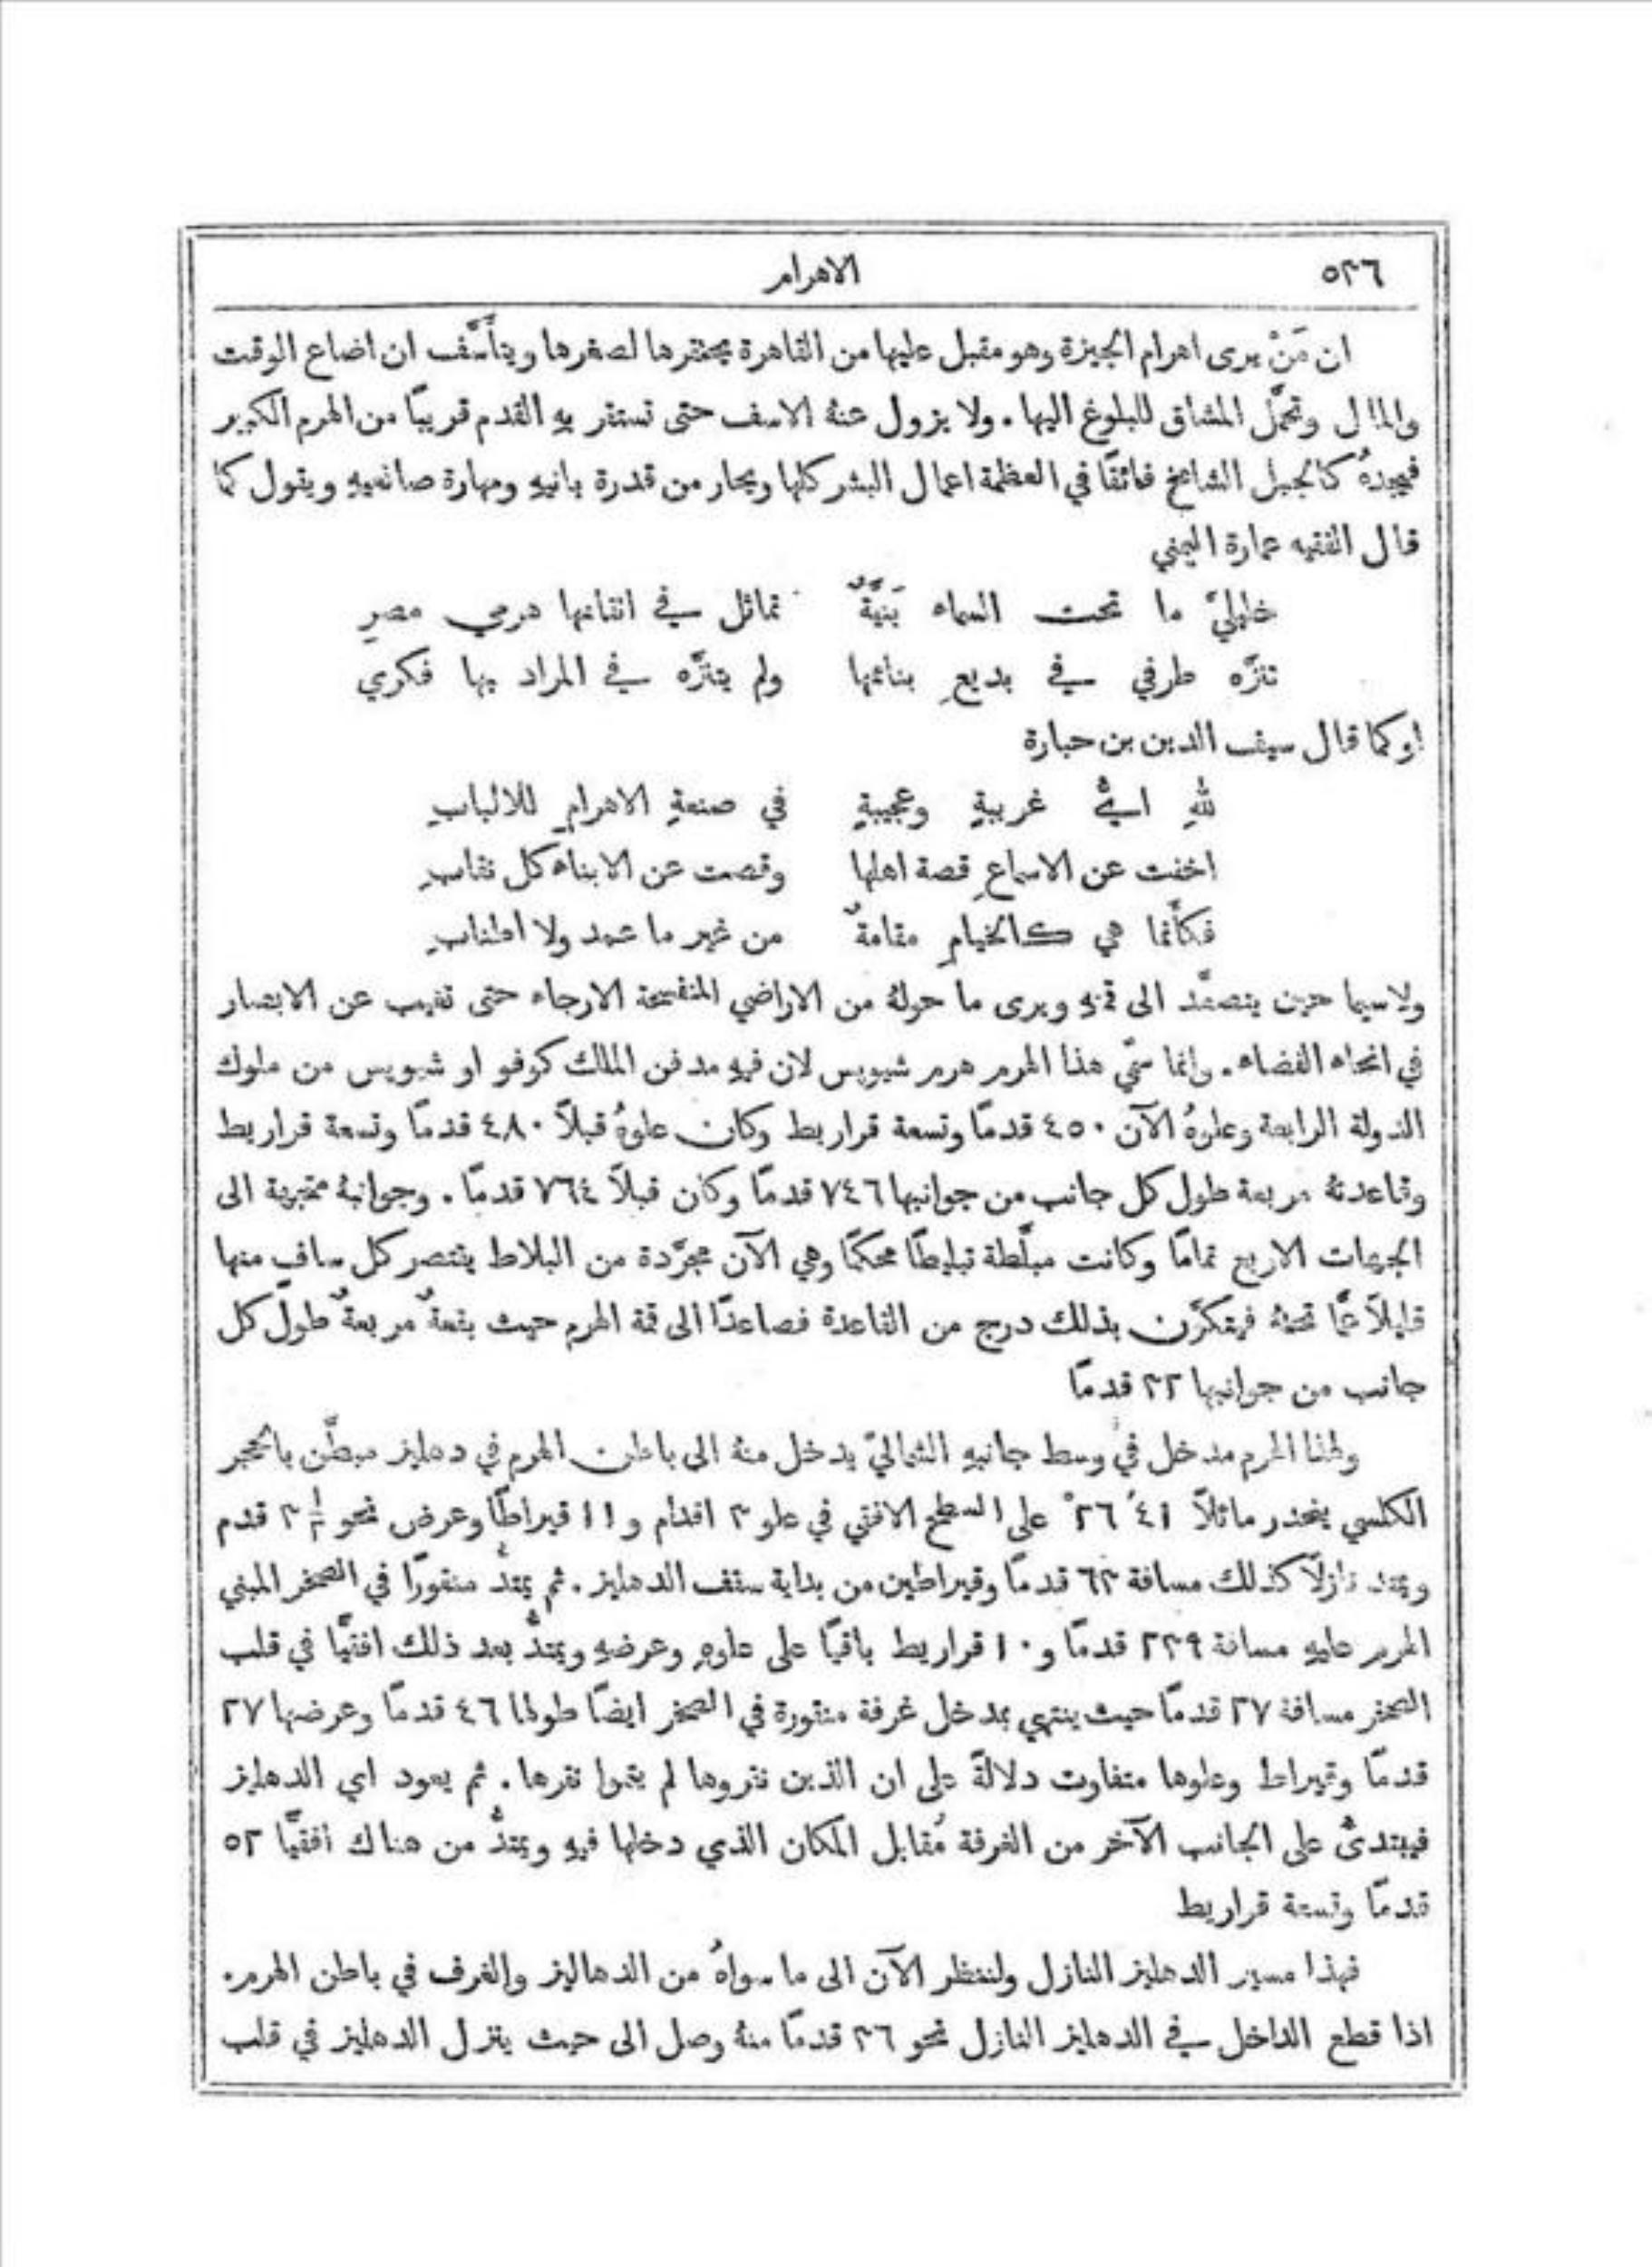 ٥٣٦
الاهرام
ان مَنْ يرى اهرام الجيزة وهو مقبل عليها من القاهرة يحتقرها لصغرها ويتأَسَّف ان اضاع الوقت
والمال وتحمَّل المشاق للبلوغ اليها. ولا يزول عنهُ الاسف حتى تستقر بهِ القدم قريبًا من الهرم الكبير
فيجدهُ كالجبل الشامخ فائقًا في العظمة اعمال البشر كلها ويحار من قدرة بانيهِ ومهارة صانعيهِ ويقول كما
قال الفقيه عمارة اليمني
خليليَّ ما تحت السماء بَنيَّةٌ تماثل في اتقانها هرمي مصرِ
تنزَّه طرفي في بديعِ بنائها ولم يتنزَّه في المراد بها فكري
او كما قال سيف الدين بن حبارة
للهِ ايُّ غريبةٍ وعجيبةٍ في صنعةِ الاهرامِ للالبابِ
اخفت عن الاسماعِ قصة اهلها وقصت عن الابناء كل نقابِ
فكأَنما هي كالخيامِ مقامةٌ من غير ما عمد ولا اطنابِ
ولاسيما حين يتصعَّد الى قمتهِ ويرى ما حولهُ من الاراضي المنفسحة الارجاء حتى تغيب عن الابصار
في انحاء الفضاء. وانما سمّي هذا الهرم هرم شيوبس لان فيهِ مدفن الملك كوفو او شيوبس من ملوك
الدولة الرابعة وعلوهُ الآن ٤٥٠ قدمًا وتسعة قراريط وكان علوهُ قبلاً ٤٨٠ قدمًا وتسعة قراريط
وقاعدتهُ مربعة طول كل جانب من جوانبها ٧٤٦ قدمًا وكان قبلاً ٧٦٤ قدمًا. وجوانبهُ متجهة الى
الجهات الاربع تمامًا وكانت مبلَّطة تبليطًا محكمًا وهي الآن مجرَّدة من البلاط يقتصر كل سافٍ منها
قليلاً عمَّا تحتهُ فيتكوَّن بذلك درج من القاعدة فصاعدًا الى قمة الهرم حيث بقعةٌ مربعةٌ طول كل
جانب من جوانبها ٣٢ قدمًا
ولهذا الهرم مدخل في وسط جانبهِ الشماليّ يدخل منهُ الى باطن الهرم في دهليز مبطَّن بالحجر
الكلسي ينحدر مائلاً ٤١َ ٢٦ْ على السطح الافقي في علو ٣ اقدام و١١ قيراطًا وعرض نحو ٣½ قدم
ويمتد نازلاً كذلك مسافة ٦٣ قدمًا وقيراطين من بداية سقف الدهليز. ثم يمتدُّ منقورًا في الصخر المبني
الهرم عليهِ مسافة ٢٣٩ قدمًا و١٠ قراريط باقيًا على علوهِ وعرضهِ ويمتدُّ بعد ذلك افقيًّا في قلب
الصخر مسافة ٢٧ قدمًا حيث ينتهي بمدخل غرفة منقورة في الصخر ايضًا طولها ٤٦ قدمًا وعرضها ٢٧
قدمًا وقيراط وعلوها متفاوت دلالةً على ان الذين نقروها لم يتموا نقرها. ثم يعود اي الدهليز
فيبتدئُ على الجانب الآخر من الغرفة مُقابل المكان الذي دخلها فيهِ ويمتدُّ من هناك افقيًّا ٥٢
قدمًا وتسعة قراريط
فهذا مسير الدهليز النازل ولننظر الآن الى ما سواهُ من الدهاليز والغرف في باطن الهرم.
اذا قطع الداخل في الدهليز النازل نحو ٣٦ قدمًا منهُ وصل الى حيث ينزل الدهليز في قلب